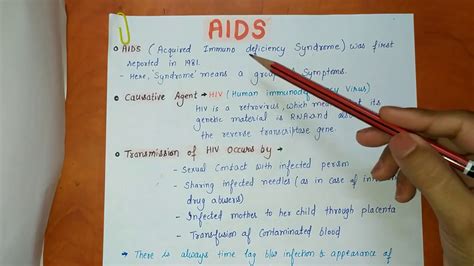 AIDS
• AIDS (Acquired Immuno deficiency Syndrome) was first
reported in 1981.
- Here, Syndrome means a group of Symptoms.
• Causative Agent → HIV (Human immunod cy Virus)
HIV is a retrovirus, which mea t its
genetic material is RNA and als
the reverse transcriptase gene.
• Transmission of HIV Occurs by →
- Sexual Contact with infected person
- Sharing infected needles (as in case of in
drug abusers)
- Infected mothers to her child through placenta
- Transfusion of Contaminated blood
→ There is always time lag b/w infection & appearance of